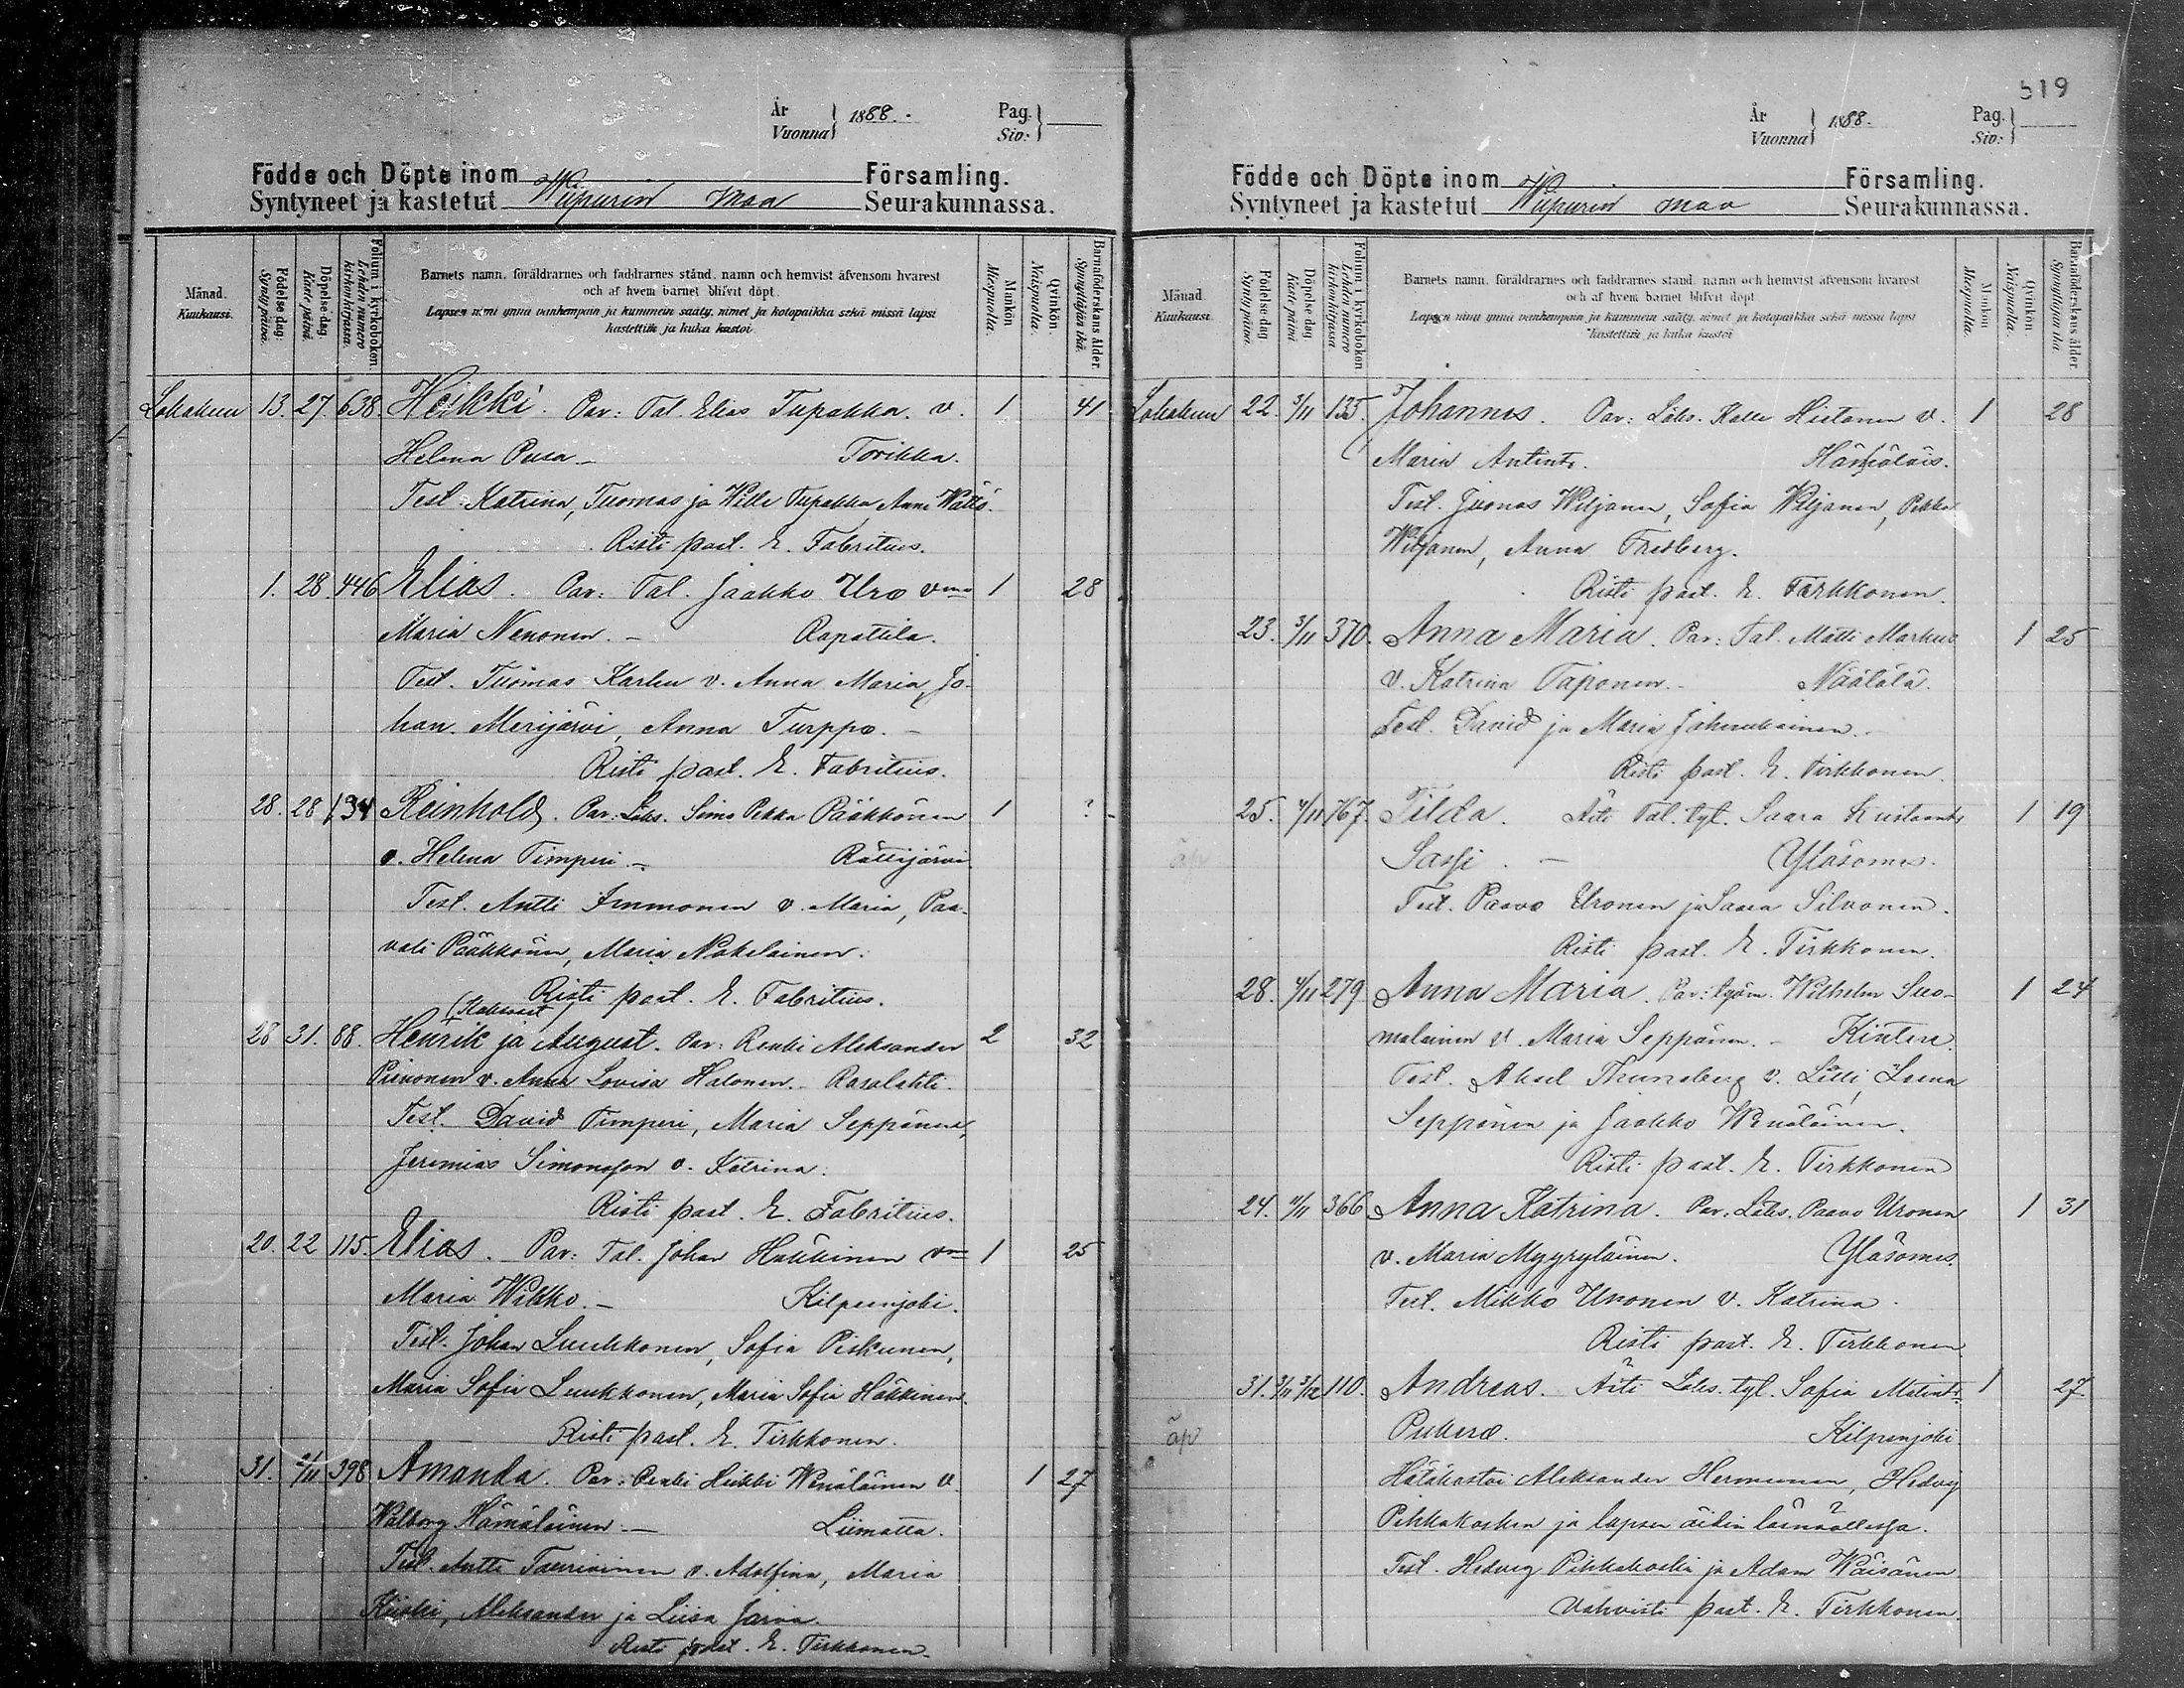 År
Vuonna } 1888.
Pag.
Siv: }
Födde och Döpte inom Församling.
Syntyneet ja kastetut Wiipurin maa Seurakunnassa.
Månad.
Kuukausi.
Födelse dag.
Synty päivä.
Döpelse dag.
Kaste päivä.
Folium i kyrkobokon.
Lehden numero kirkonkirjassa.
Barnets namn, föräldrarnes och faddrarnes stånd, namn och hemvist äfvensom hvarest
och af hvem barnet blifvit döpt.
Lapsen nimi ynnä vanhempain ja kummein sääty, nimet ja kotopaikka sekä missä lapsi
kastettiin ja kuka kastoi.
Mankön
Miespuolia.
Qvinkön.
Naispuolia.
Barnaföderskans ålder.
Synnyttäjän ikä.
Lokakuu 13. 27. 638. Heikki. Par: Tal. Elias Tupakka v. 1 41
Helena Pusa Torikka.
Test. Katrina, Tuomas ja Wille Tupakka, Anni Wättö.
Risti past. E. Fabritius.
1. 28. 446 Elias. Par: Tal. Jaakko Uro vmo 1 28
Maria Nenonen. Rapattila.
Test. Tuomas Karlu v. Anna Maria, Jo-
han Merijärvi, Anna Turppo.
Risti past. E. Fabritius.
28. 28 134 Reinhold. Par: Läks. Simo Pekka Pääkkönen 1 ?
v. Helena Timperi Rättijärvi
Test. Antti Immonen v. Maria, Paa-
vali Pääkkönen, Maria Nokelainen.
Risti past. E. Fabritius.
(Kaksoset)
28 31. 88. Henrik ja August. Par: Renki Aleksander 2 32
Piinonen v. Anna Lovisa Halonen. Rasalahti.
Test. David Timperi, Maria Seppänen,
Jeremias Simonsson v. Katrina.
Risti past. E. Fabritius.
20. 22 115. Elias. Par: Tal. Johan Häkkinen vmo 1 25
Maria Wikko. Kilpeenjoki.
Test. Johan Luukkonen, Sofia Piskunen,
Maria Sofia Luukkonen, Maria Sofia Häkkinen.
Risti past. E. Tirkkonen.
31. 2/11 398 Amanda. Par: Renki Heikki Wenäläinen v. 1 27
Walborg Hämäläinen. Liimatta.
Test. Antti Tauriainen v. Adolfina, Maria
Kiiski, Aleksander ja Liisa Jarva.
Risti past. E. Tirkkonen.
519
År
Vuonna } 1888.
Pag.
Siv: }
Födde och Döpte inom Församling.
Syntyneet ja kastetut Wiipurin maa Seurakunnassa.
Månad.
Kuukausi.
Födelse dag
Synty päivä.
Döpelse dag
Kaste päivä
Folium i kyrkobokon
Lehden numero kirkonkirjassa
Barnets namn, föräldrarnes och faddrarnes stånd, namn och hemvist äfvensom hvarest
och af hvem barnet blifvit döpt
Lapsen nimi ynnä vanhempain ja kummein sääty, nimet ja kotopaikka sekä missä lapsi
kastettiin ja kuka kastoi
Mankön
Miespuolia.
Qvinkön.
Naispuolia.
Barnaföderskans ålder.
Synnyttäjän ikä
Lokakuu 22. 3/11 135. Johannes. Par: Läks. Kalle Hietanen v. 1 28
Maria Antint. Hämäläis.
Test. Juonas Wiljanen, Sofia Wiljanen, Pekka
Wiljanen, Anna Fredberg.
Risti past. E. Tirkkonen.
23. 3/11 370. Anna Maria. Par: Tal. Matti Markus 1 25
v. Katrina Taponen. Näätälä.
Test. David ja Maria Johunkainen.
Risti past. E. Tirkkonen.
25. 4/11 767. Tilda. Äiti Tal. tyt. Saara Kristiant. 1 19
äp Sassi. Yläsomes.
Test. Paavo Uronen ja Saara Silvonen.
Risti past. E. Tirkkonen.
28. 4/11 279 Anna Maria. Par: työm. Wilhelm Suo- 1 24
malainen v. Maria Seppänen. Kintere.
Test. Aksel Thuneberg v. Lilli, Leena
Seppänen ja Jaakko Wenäläinen.
Risti past. E. Tirkkonen
24. 4/11 366 Anna Katrina. Par: Läks. Paavo Uronen 1 31
v. Maria Myyryläinen. Yläsomes.
Test. Mikko Uronen v. Katrina.
Risti past. E. Tirkkonen
31. 3/11 3/12 110. Andreas. Äiti Läks. tyt. Sofia Matint. 1 27.
äp Pukero. Kilpeenjoki
Hätäkastoi Aleksander Hermunen, Hedvig
Pikkakosken ja lapsen äidin läsnäollessa.
Test. Hedvig Pikkakoski ja Adam Wäisänen
Vahvisti past. E. Tirkkonen.